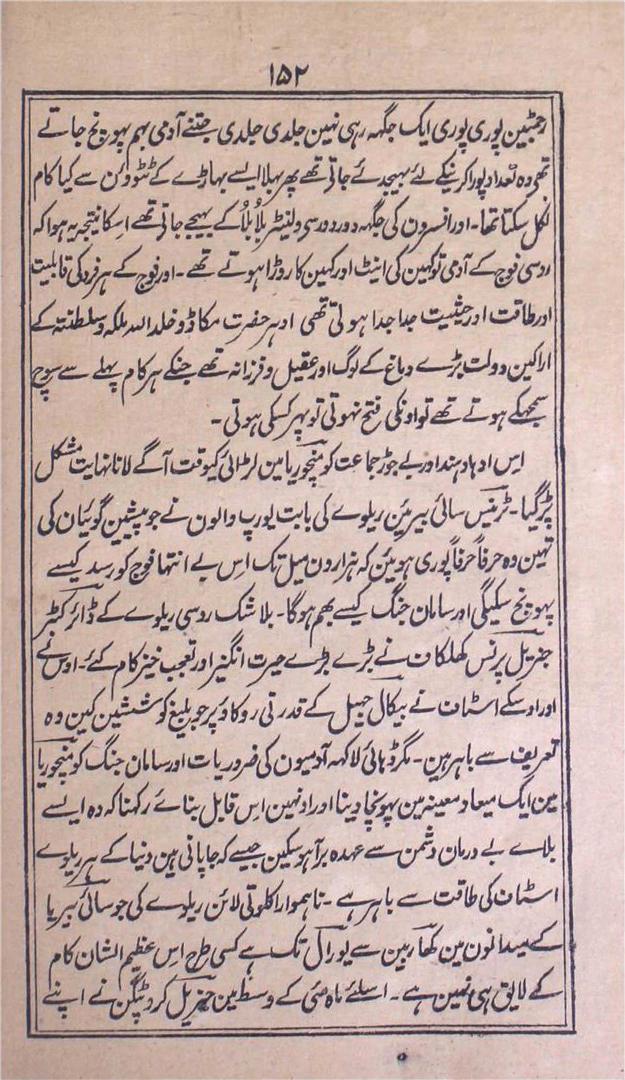 ۱۵۲
رجمٹین پوری پوری ایک جگہہ رہی نہین جلدی جلدی جتنے آدمی بہم پہونچ جاتے
تھے وہ تعداد پورا کرنیکے لئے بہیجدئے جاتے تھے پھر بہلا ایسے بہاڑے کے ٹٹوؤن سے کیا کام
نکل سکتا تھا۔ اور افسرون کی جگہہ دور دور سی ولنٹیر بلا بلا کے بہیجے جاتی تھے اسکا نتیجہ یہ ہوا کہ
روسی فوج کے آدمی تو کہین کی اینٹ اور کہین کا روڑا ہوتے تھے۔ اور فوج کے ہر فرد کی قابلیت
اور طاقت اور حیثیت جدا جدا ہوتی تھی ادہر حضرت مکاڈو خلد اللہ ملکہ وسلطنتہ کے
اراکین دولت بڑے دماغ کے لوگ اور عقیل و فرزانہ تھے جنکے ہر کام پہلے سے سوچ
سمجہکے ہوتے تھے تو اونکی فتح نہوتی تو پہر کسکی ہوتی۔
اس اندہا دہند اور بے جوڑ جماعت کو منچوریا مین لڑائی کیوقت آگے لانا نہایت مشکل
پڑ گیا۔ ٹرینس سائی بیرئین ریلوے کی بابت یورپ والون نے جو پیشین گوئیان کی
تہین وہ حرفاً حرفاً پوری ہوئین کہ ہزارون میل تک اس بے انتہا فوج کو رسد کیسے
پہونچ سکیگی اور سامان جنگ کیسے بہم ہوگا۔ بلاشک روسی ریلوے کے ڈائرکٹر
جنریل پرنس کھلکان نے بڑے بڑے حیرت انگیز اور تعجب خیز کام کئے۔ اوس نے
اور اوسکے اسٹاف نے بیکال جہیل کے قدرتی روکاؤ پر جو بلیغ کوششین کین وہ
تعریف سے باہر ہین۔ مگر ڈہائی لاکہہ آدمیون کی ضروریات اور سامان جنگ کو منچوریا
مین ایک میعاد معینہ مین پہونچا دینا اور اونہین اس قابل بنائے رکہنا کہ وہ ایسے
بلاے بے درمان دشمن سے عہدہ برآ ہو سکین جیسے کہ جاپانی ہین دنیا کے ہر ریلوے
اسٹاف کی طاقت سے باہر ہے۔ ناہموار اکلوتی لائن ریلوے کی جو سائی بیریا
کے میدانون مین کھاربین سے یورال تک ہے کسی طرح اس عظیم الشان کام
کے لایق ہی نہین ہے۔ اسلئے ماہ مئی کے وسط مین جنریل کروپٹکن نے اپنے